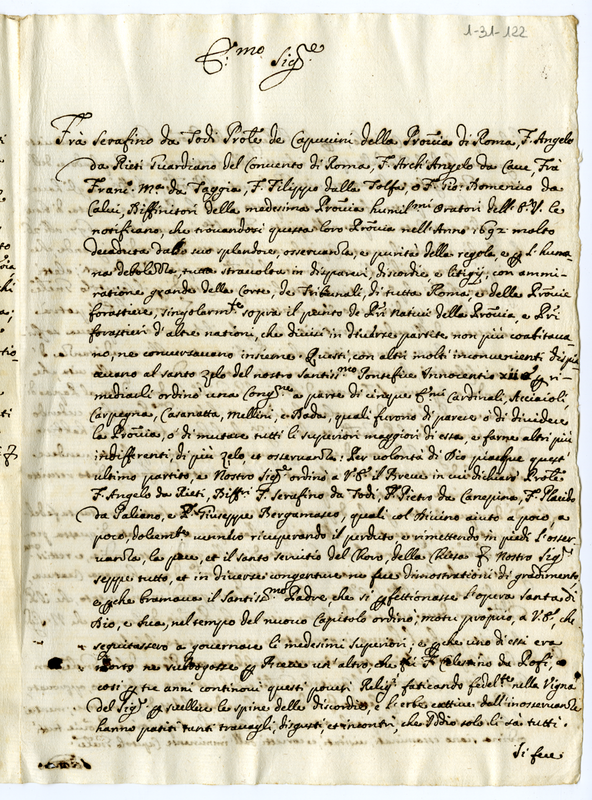 1-31-122
E.mo Sig.re
Frà Serafino da Todi Prole de Capuccini della Prouia di Roma, F. Angelo
da Rieti Guardiano del Conuento di Roma, F. Arch Angelo da Caue, Frà
Franc.o M.a da Taggia, F. Filippo dalla Tolfa, e F. Gio: Domenico da
Calui, Diffinitori della medesima Prouia humil.mi Oratori dell'E. V. le
notificano, che trouandosi questa loro Prouia nell'Anno 1692 molto
decaduta dal suo splendore, osseruanza, e purità della regola, e p l'huma
na debolezza, tutta strauolta in dispareri, discordie e litigij; con ammi-
ratione grande della Corte, de Tribunali, di tutta Roma, e delle Prouie
forastiere, singolarm.te sopra il punto de PPri natiui della Prouia, e PPri
forastieri d'altre nationi, che diuisi in diuerse partite non più coabitaua-
no, ne conuersauano insieme. Questi, con altri molti inconuenienti dispia
ceuano al santo zelo del nostro Santiss.mo Pontefice Innocentio xii e p ri-
mediarli ordinò una Cong.ne a parte di cinque E.mi Cardinali, Acciaioli,
Carpegna, Casanatta, Mellini, e Bada, quali furono di parere o di diuidere
la Prouia, o di mutare tutti li superiori maggiori di essa, e farne altri più
indifferenti, di più zelo, et osseruanza: Per uolontà di Dio piacque quest'
ultimo partito, e Nostro Sig.re ordinò a V. E. il Breue in cui dichiarò Prole
F. Angelo da Rieti, Diffri F. Serafino da Todi, F. Pietro da Canepina, F. Placido
da Paliano, e F. Giuseppe Bergamasco, quali col Diuino aiuto a poco, a
poco, dolcem.te uennero ricuperando il perduto, e rimettendo in piedi l'osser
uanza, la pace, et il santo seruitio del Choro, della Chiesa. Nostro Sig.re
seppe tutto, et in diuerse congenture ne fece dimostrationi di gradimento
e p che bramaua il Santiss.mo Padre, che si pfettionasse l'opera santa di
Dio, e sua, nel tempo del nuouo Capitolo ordinò; motu proprio, a V. E., che
seguitassero a gouernare li medesimi superiori; e p che uno di essi era
morto ne surrogasse p Breue un'altro, che fù F. Celestino da Rofi,
così p tre anni continoui questi poueri Relig.i faticando fedel.te nella Vigna
del Sig.re p suellere le spine delle discordie, e l'erbe cattiue dell'inosseruanza
hanno patiti tanti trauagli, disgusti, et incontri, che Iddio solo li sà tutti.
Si fece